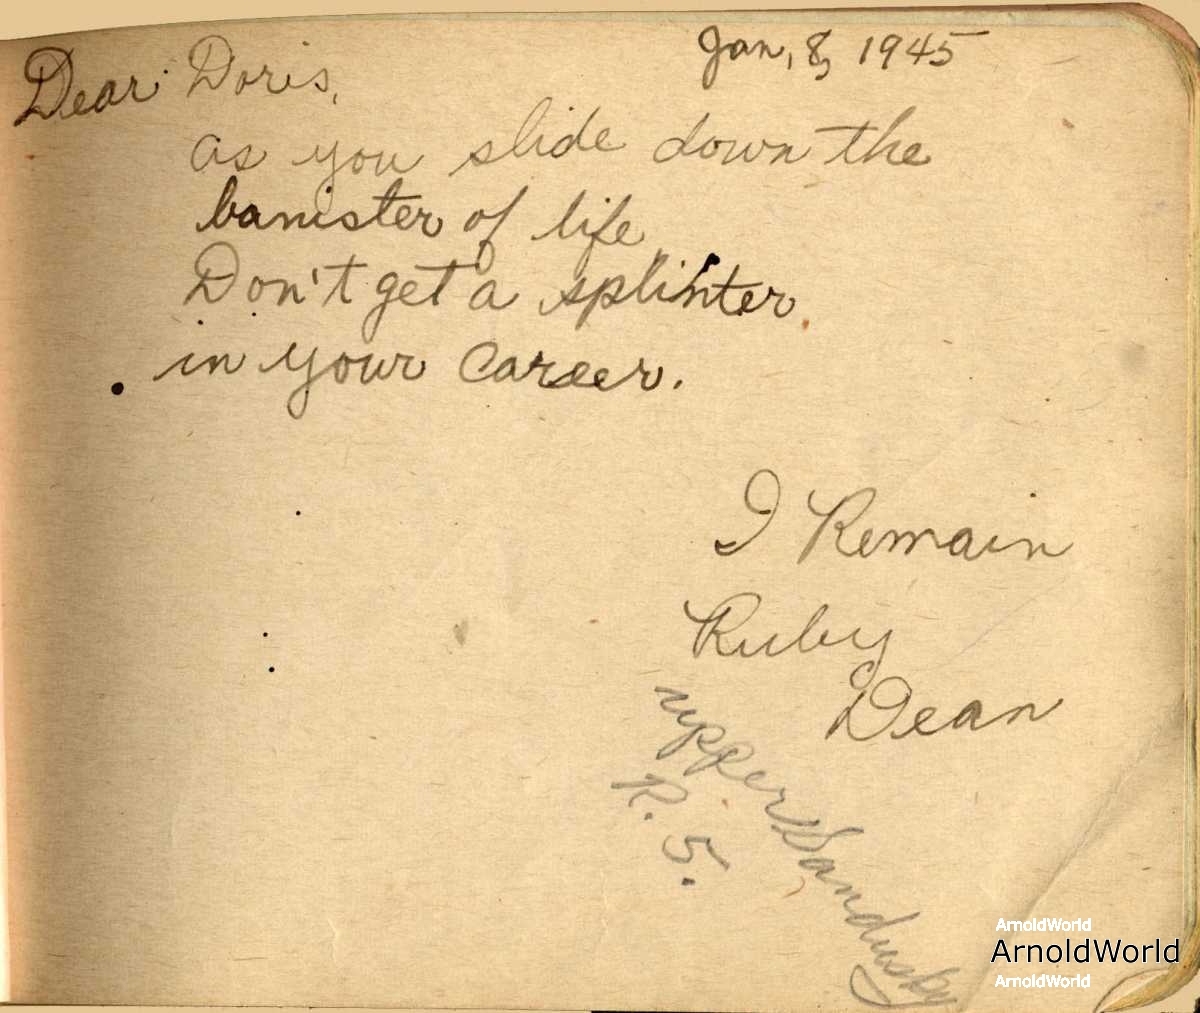 Jan, 8, 1945
Dear Doris,
as you slide down the
banister of life
Don't get a splinter
in your career.
I Remain
Ruby
Dean
upper Sandusky
R. 5.
ArnoldWorld
ArnoldWorld
ArnoldWorld